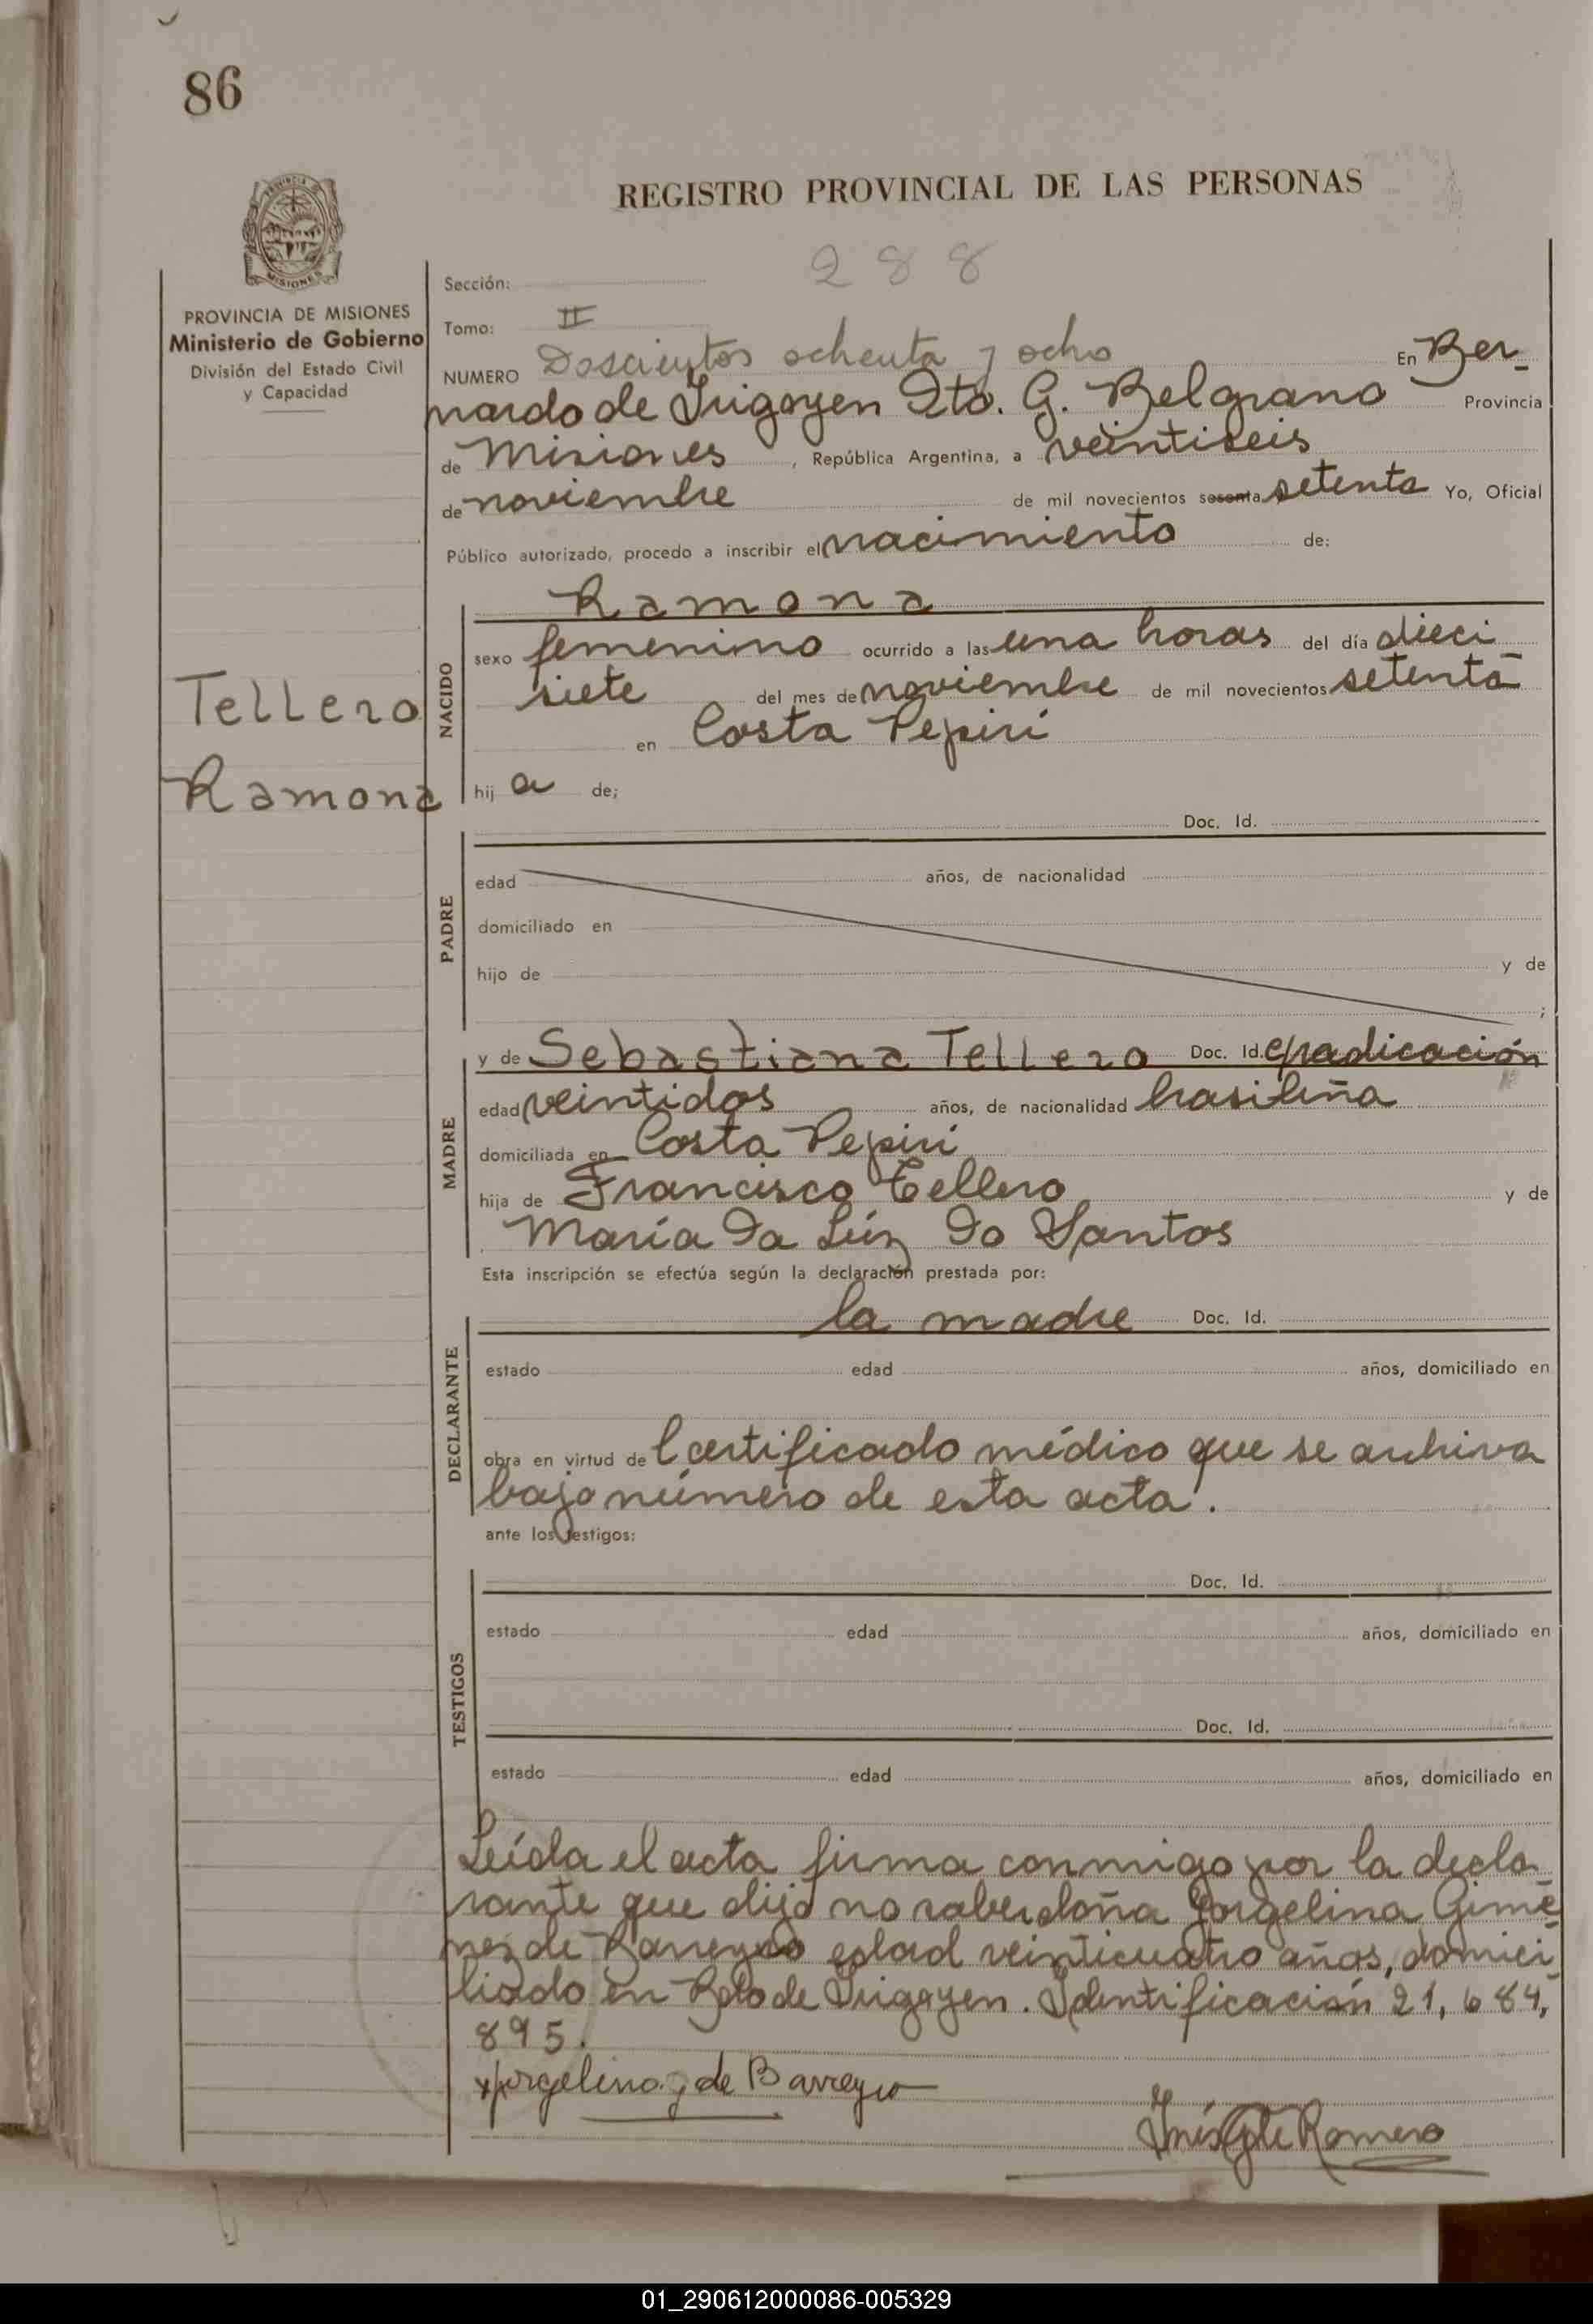 86
REGISTRO PROVINCIAL DE LAS PERSONAS
PROVINCIA DE MISIONES
Ministerio de Gobierno
División del Estado Civil
y Capacidad
Tellero
Ramona
288
Sección:
Tomo: II
NUMERO Doscientos ochenta y ocho En Ber-
nardo de Irigoyen Dto. G. Belgrano Provincia
de Misiones, República Argentina, a veintiseis
de noviembre de mil novecientos sesenta setenta Yo, Oficial
Público autorizado, procedo a inscribir el nacimiento de:
NACIDO
Ramona
sexo femenino ocurrido a las una horas del día dieci
siete del mes de noviembre de mil novecientos setenta
en Costa Pepirí
hij a de;
PADRE
Doc. Id.
edad años, de nacionalidad
domiciliado en
hijo de y de
;
MADRE
y de Sebastiana Tellero Doc. Id. radicación
edad veintidos años, de nacionalidad brasileña
domiciliada en Costa Pepirí
hija de Francisco Tellero y de
María Da Lúz Do Santos
Esta inscripción se efectúa según la declaración prestada por:
DECLARANTE
la madre Doc. Id.
estado edad años, domiciliado en
obra en virtud de Certificado médico que se archiva
bajo número de esta acta.
ante los testigos:
TESTIGOS
Doc. Id.
estado edad años, domiciliado en
Doc. Id.
estado edad años, domiciliado en
Leída el acta firma conmigo por la decla
rante que dijo no saber doña Jorgelina Gimé
nez de Barreyro edad veinticuatro años, domici
liado en Bdo de Irigoyen. Identificación 21,684,
895.
Jorgelina g de Barreyro
Inés G de Romero
01_290612000086-005329